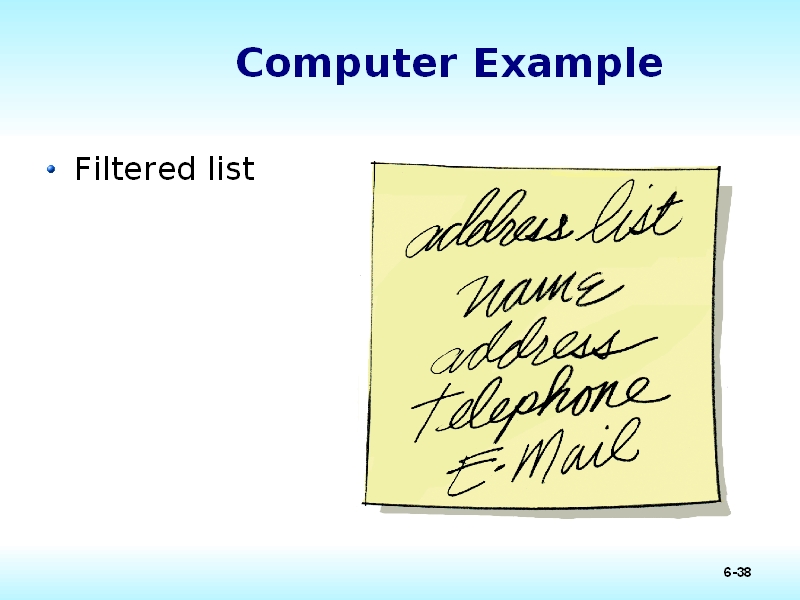 Computer Example
Filtered list
address list
name
address
Telephone
E-Mail
6-38